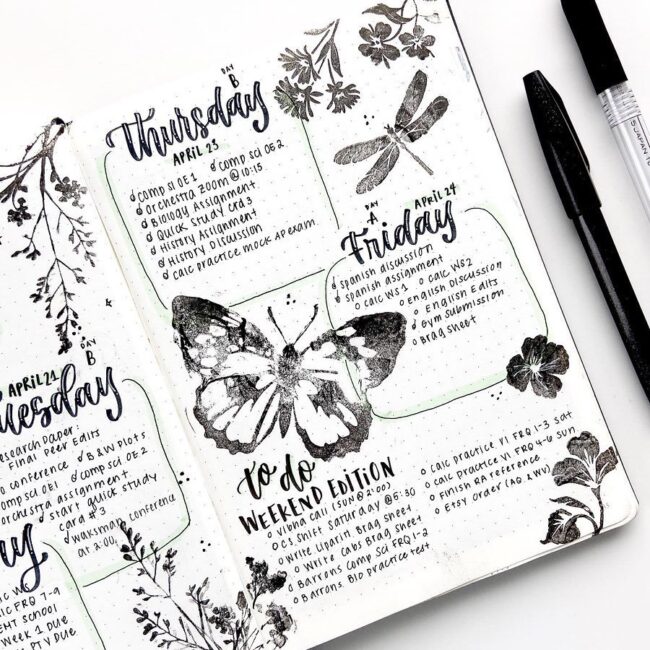 APRIL 21
DAY B
Tuesday
Research Paper:
Final Peer Edits
conference B&W Plots
comp sci OE1 comp sci OE2
orchestra assignment
start quick study
card #3
Waksman conference
at 2:00
FRQ 7-9
Week 1 Due
Due
DAY B
Thursday
APRIL 23
comp sci OE1 comp sci OE2
Orchestra Zoom @ 10:15
Biology Assignment
Quick Study Card 3
History Assignment
History Discussion
Calc practice mock AP exam
DAY A
APRIL 24
Friday
Spanish discussion
Spanish assignment
Calc WS 1 Calc WS2
English Discussion
English Edits
Gym Submission
Brag sheet
to do
WEEKEND EDITION
Vibha Call (Sun @ 2:00)
C.S. Shift Saturday @ 6:30
Write Liparin Brag Sheet
Write Cabs Brag Sheet
Barrons Comp Sci FRQ 1-2
Barrons Bio practice test
Calc Practice VI FRQ 1-3 Sat
Calc Practice VI FRQ 4-6 Sun
Finish RA reference
Etsy Order (AG & WV)
JAPAN